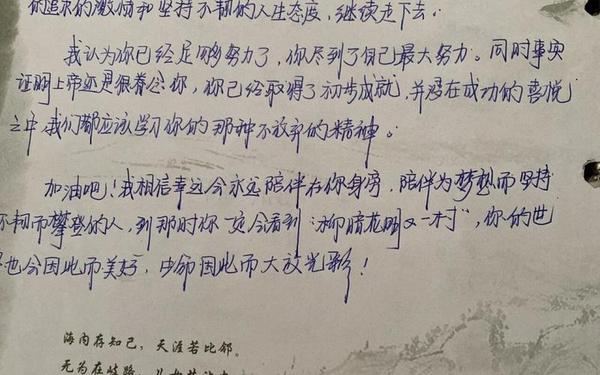 的追求的激励和坚持不韧的人生态度,继续走下去.
我认为你已经足够努力了,你尽到了自己最大努力。同时事实
证明上帝还是很眷念你,你已经取得了初步成就,并浸在成功的喜悦
之中,我们都应该学习你的那种不放弃的精神。
加油吧!我相信幸运会永远陪伴在你身旁,陪伴为梦想而坚持
不韧而攀登的人,到那时你一定会看到"柳暗花明又一村",你的世
也会因此而美好,生命因此而大放光彩!
海内存知己,天涯若比邻。
无为在歧路,儿女共沾巾